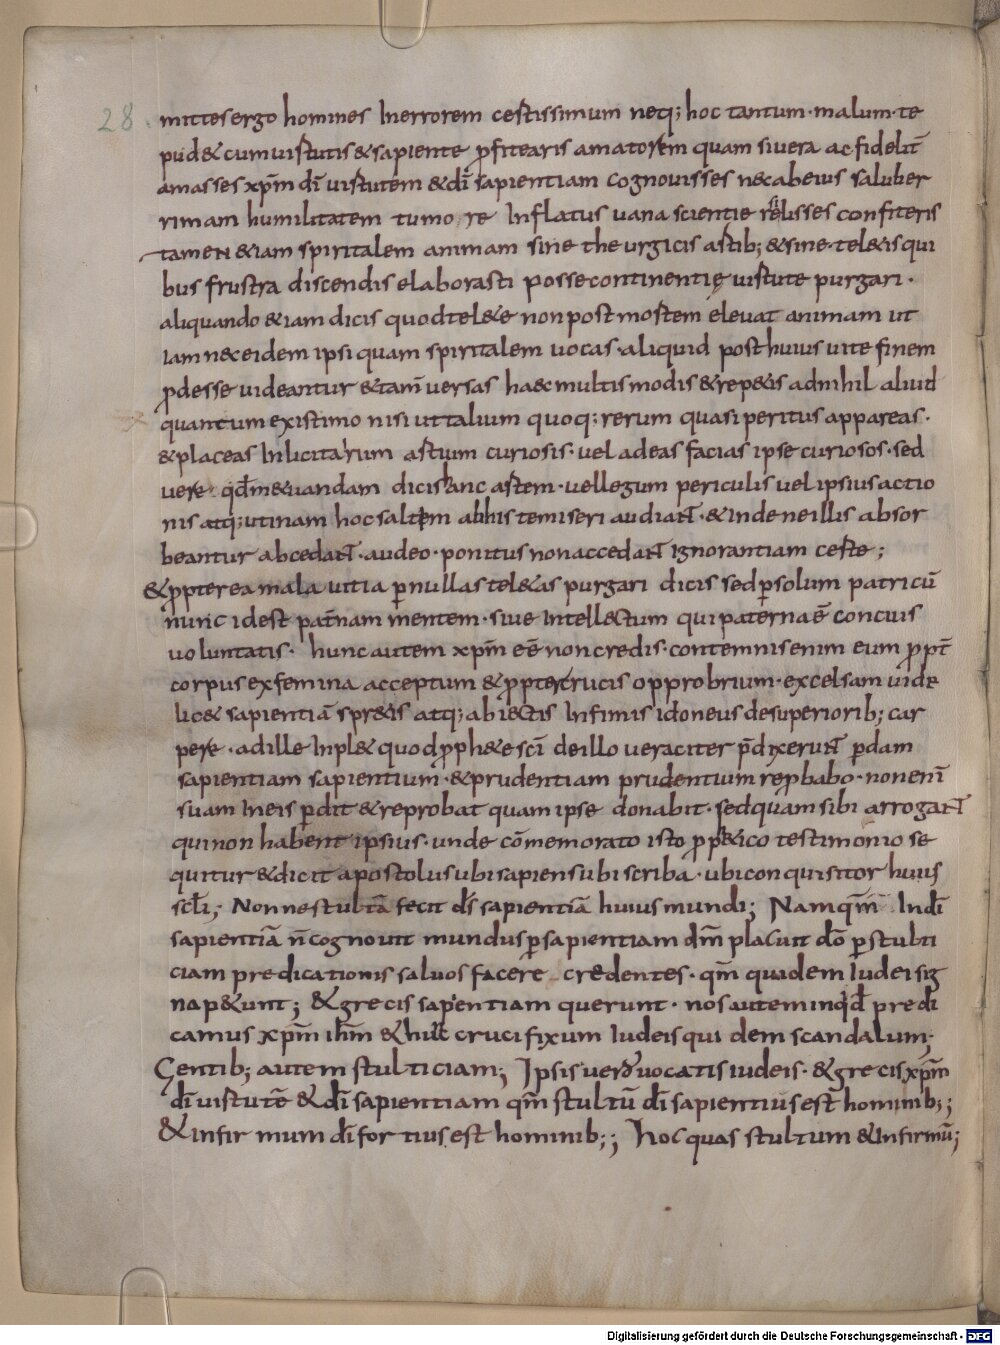 28
mittes ergo homines Inerrorem certissimum neq; hoc tantum·malum·te
pud& cum uirtutis & sapiente ꝓfitearis amatorem quam siuera ac fidelit̄
amasses xp̄m dī uirtutem & dī sapientiam cognouisses nec ab eius saluber
rimam humilitatem tumore Inflatus uana scientie relisses confiteris
tamen &iam spiritalem animam sine theurgicis artib; & sine·tel&is qui
bus frustra discendis elaborasti posse continentię uirtute purgari·
aliquando &iam dicis quod tel&e non post mortem eleuat animam ut
iam nec eidem ipsi quam spiritalem uocas·aliquid post huius uite finem
ꝓdesse uideantur & tam̄ uersas haec multis modis & rep&is ad nihil aliud
quantum existimo nisi ut talium quoq; rerum quasi peritus appareas·
& placeas Inlicitarum artium curiosis·uel adeas facias ipse curiosos·sed
uere qd̄ m&uandam dicis hanc artem·uel legum periculis uel ipsius actio
nis atq; utinam hoc saltem abhis te miseri audiant·& inde ne illis absor
beantur abcedant·audeo·ponitus non accedant Ignorantiam certe;
& ꝓpterea mala uitia ꝑ nullas tel&as purgari dicis sed ꝑ solum patricū
nunc id est pat̄nam mentem·siue Intellectum qui paterna ē concius
uoluntatis· hunc autem xp̄m eē non credis·contemnis enim eum ꝓpt̄
corpus ex femina acceptum & ꝓpter crucis opprobrium·excelsam uide
lic& sapientiā spr&is atq; abiectis Infimis idoneus de superiorib; car
pere·ad ille Inpl& quod ꝓph&e sc̄i de illo ueraciter p̄dixerunt ꝑdam
sapientiam sapientium·& prudentiam prudentium reꝓbabo·non enī
suam In eis ꝑdit & reprobat quam ipse donabit·sed quam sibi arrogant
qui non habent ipsius·unde cōmemorato isto ꝓph&ico testimonio se
quitur & dicit apostolus ubi sapiens ubi scriba·ubi conquisitor huius
sc̄li; Nonne stultā fecit d̄s sapientiā huius mundi; Nam qm̄ In dī
sapientiā n̄ cognouit mundus ꝑ sapientiam dm̄ placuit dō ꝑ stulti
ciam predicationis saluos facere credentes·qm̄ quidem Iudei sig
na p&unt; & grecis sapientiam querunt·nos autem inqd̄ predi
camus xp̄m ih̄m & hunc crucifixum Iudeis quidem scandalum·
Gentib; autem stulticiam; Ipsis uero uocatis iudeis·& grecis xp̄m
dī uirtutē & dī sapientiam qm̄ stultū dī sapientius est hominib;;
& infirmum dī fortius est hominib;; hoc quas stultum & Infirmū;
Digitalisierung gefördert durch die Deutsche Forschungsgemeinschaft - DFG